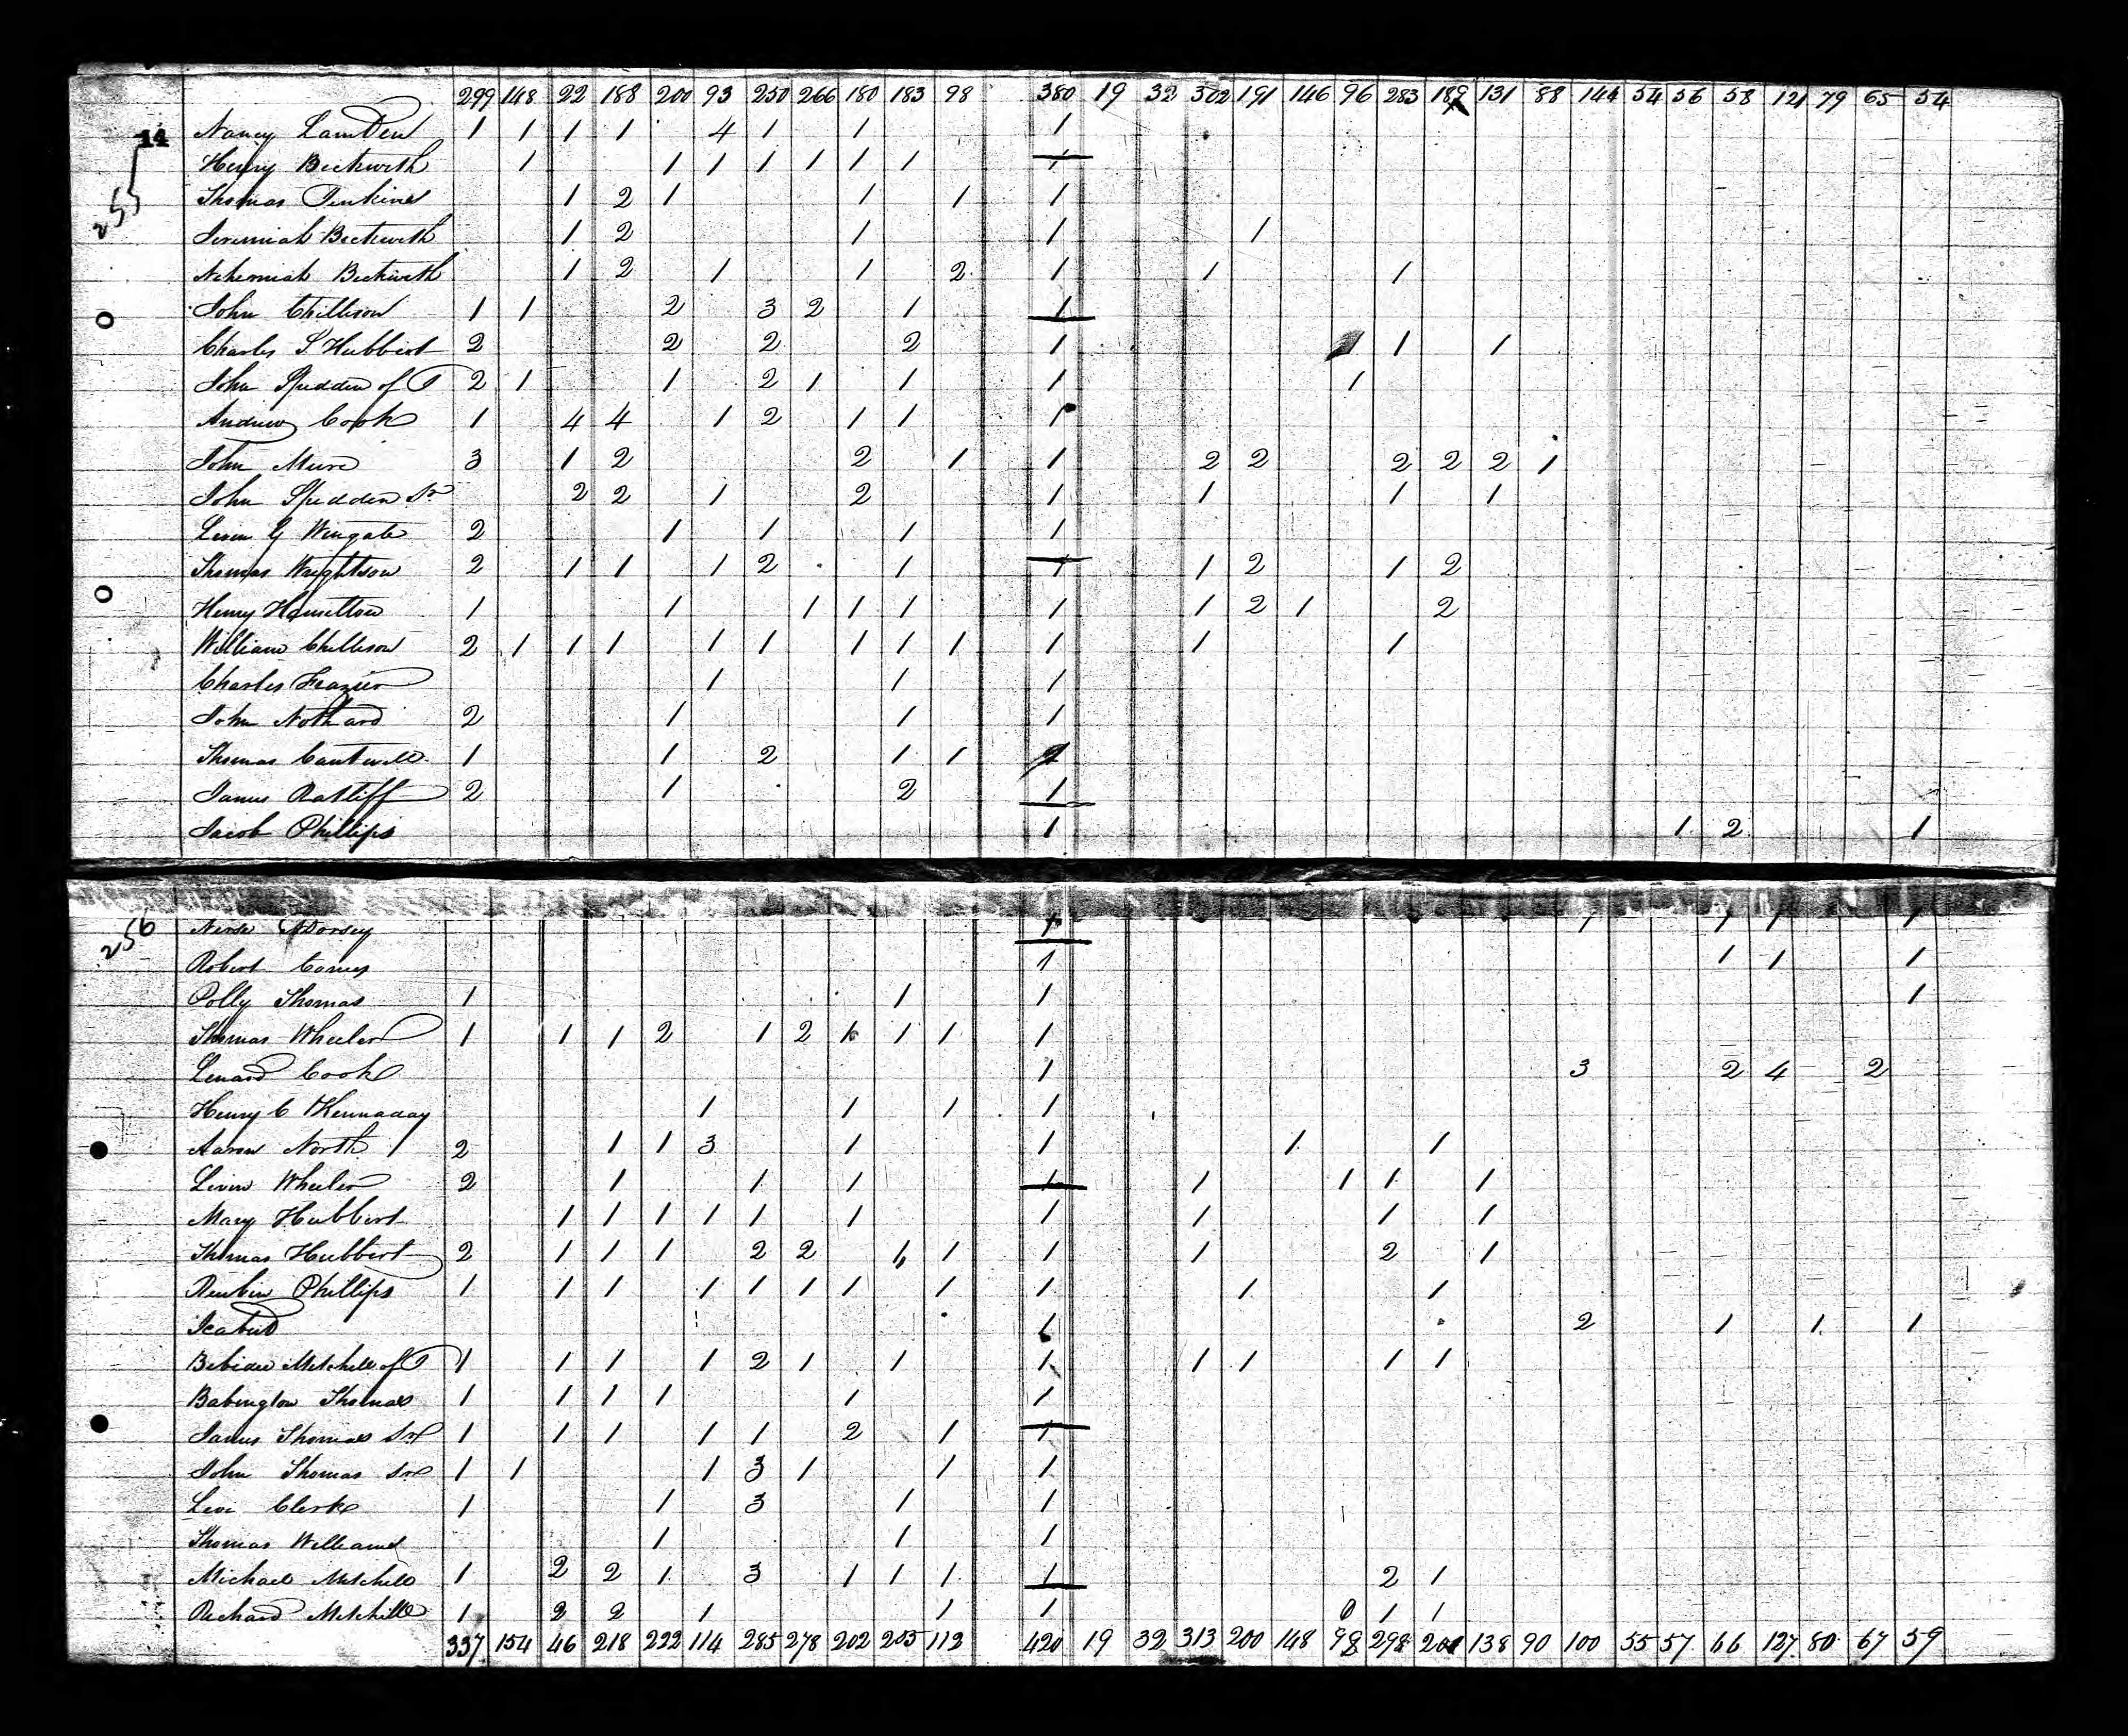 299 148 22 188 200 93 250 266 180 183 98 380 19 32 302 191 146 96 283 189 131 88 144 54 56 58 121 79 65 54
14 Nancy 1 1 1 1 4 1 1 1
255 Henry Beckwith 1 1 1 1 1 1 1 1
Thomas 1 2 1 1 1 1
Jeremiah Beckwith 1 2 1 1 1
Nehemiah Beckwith 1 2 1 1 2 1 1 1
John Chillison 1 1 2 3 2 1 1
Charles S Hubbert 2 2 2 2 1 1 1
John Spedden of 2 1 1 2 1 1 1 1
Andrew Cook 1 4 4 1 2 1 1 1
John 3 1 2 2 1 1 2 2 2 2 2 1
John Spedden Sr 2 2 1 2 1 1 1 1
Levin G Wingate 2 1 1 1 1
Thomas Wrightson 2 1 1 1 2 1 1 1 2 1 2
Henry 1 1 1 1 1 1 1 2 1 2
William Chillison 2 1 1 1 1 1 1 1 1 1 1 1
Charles Frazier 1 1 1
John Nothard 2 1 1 1
Thomas Cantwell 1 1 2 1 1
James Ratliff 2 1 2 1
Jacob Phillips 1 1 2 1
256 Dorsey 1 1 1 1 1
Robert 1 1 1 1
Polly Thomas 1 1 1 1
Thomas Wheeler 1 1 1 2 1 2 1 1 1
Lenard Cook 1 3 2 4 2
Henry C Kennaday 1 1 1 1
Aaron North 2 1 1 3 1 1 1 1
Levin Wheeler 2 1 1 1 1 1 1 1 1
Mary Hubbert 1 1 1 1 1 1 1 1 1 1
Thomas Hubbert 2 1 1 1 2 2 1 1 1 2 1
Reuben Phillips 1 1 1 1 1 1 1 1 1 1 1
2 1 1 1
Mitchell of 1 1 1 1 2 1 1 1 1 1 1 1
Babington Thomas 1 1 1 1 1 1
James Thomas 1 1 1 1 1 2 1 1
John Thomas 1 1 1 3 1 1 1
Levi Clerke 1 1 3 1 1
Thomas Williams 1 1 1
Michael Mitchell 1 2 2 1 3 1 1 1 1 2 1
Richard Mitchell 1 2 2 1 1 1 0 1 1
337 154 46 218 222 114 285 278 202 205 112 420 19 32 313 200 148 98 298 138 90 100 55 57 66 127 80 67 59